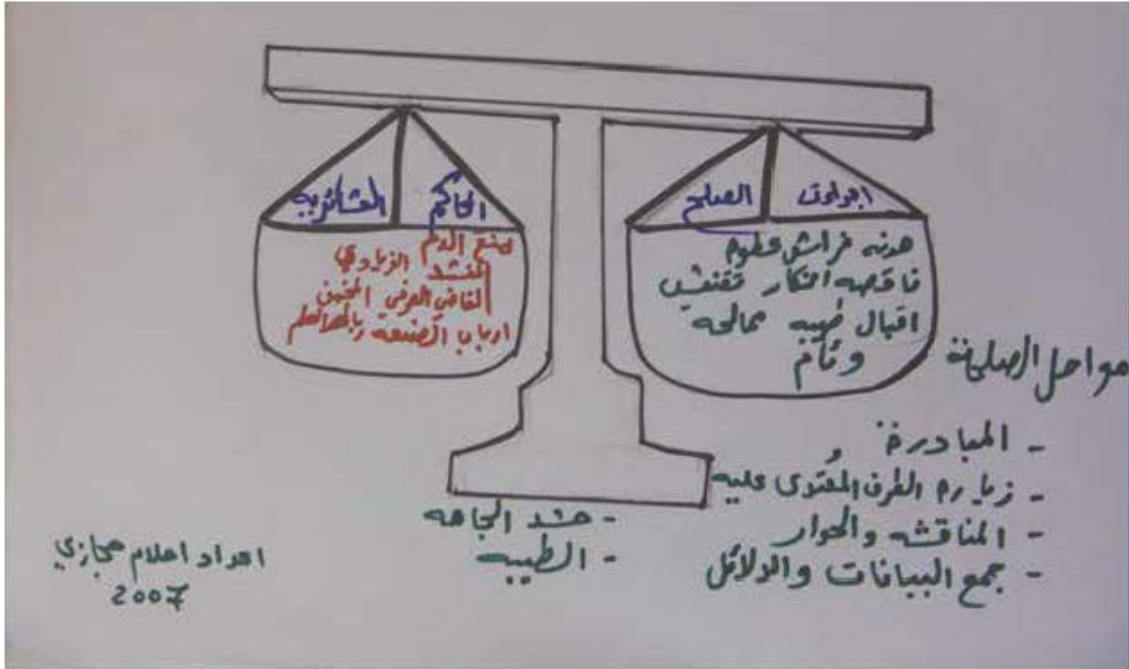 اجراءات الصلح
هدنه فراش عطوه
ناقصه انكار تفتيش
اقبال طيبه ممالحه
وئام
المحاكم العشائريه
منع الدم
المنشد الزيادي
القاضي العرفي
ارباب الصنعه
مراحل الصلحة
- المبادرة
- زياره الطرف المُعتدى عليه
- المناقشه والحوار
- جمع البيانات والدلائل
- حشد الجاهه
- الطيبه
اعداد احلام حجازي
2007